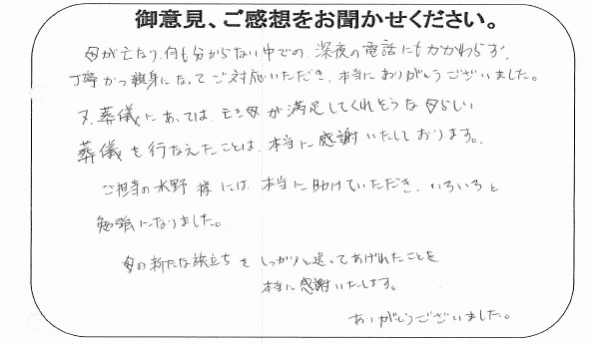 御意見、ご感想をお聞かせください。
母が亡なり、何も分からない中での、深夜の電話にもかかわらず、
丁寧かつ親身になってご対応いただき、本当にありがとうございました。
又、葬儀にあっては、亡き母が満足してくれそうな母らしい
葬儀を行なえたことは、本当に感謝いたしております。
ご担当の水野様には、本当に助けていただき、いろいろと
勉強になりました。
母の新たな旅立ちをしっかりと送ってあげれたことを
本当に感謝いたします。
ありがとうございました。